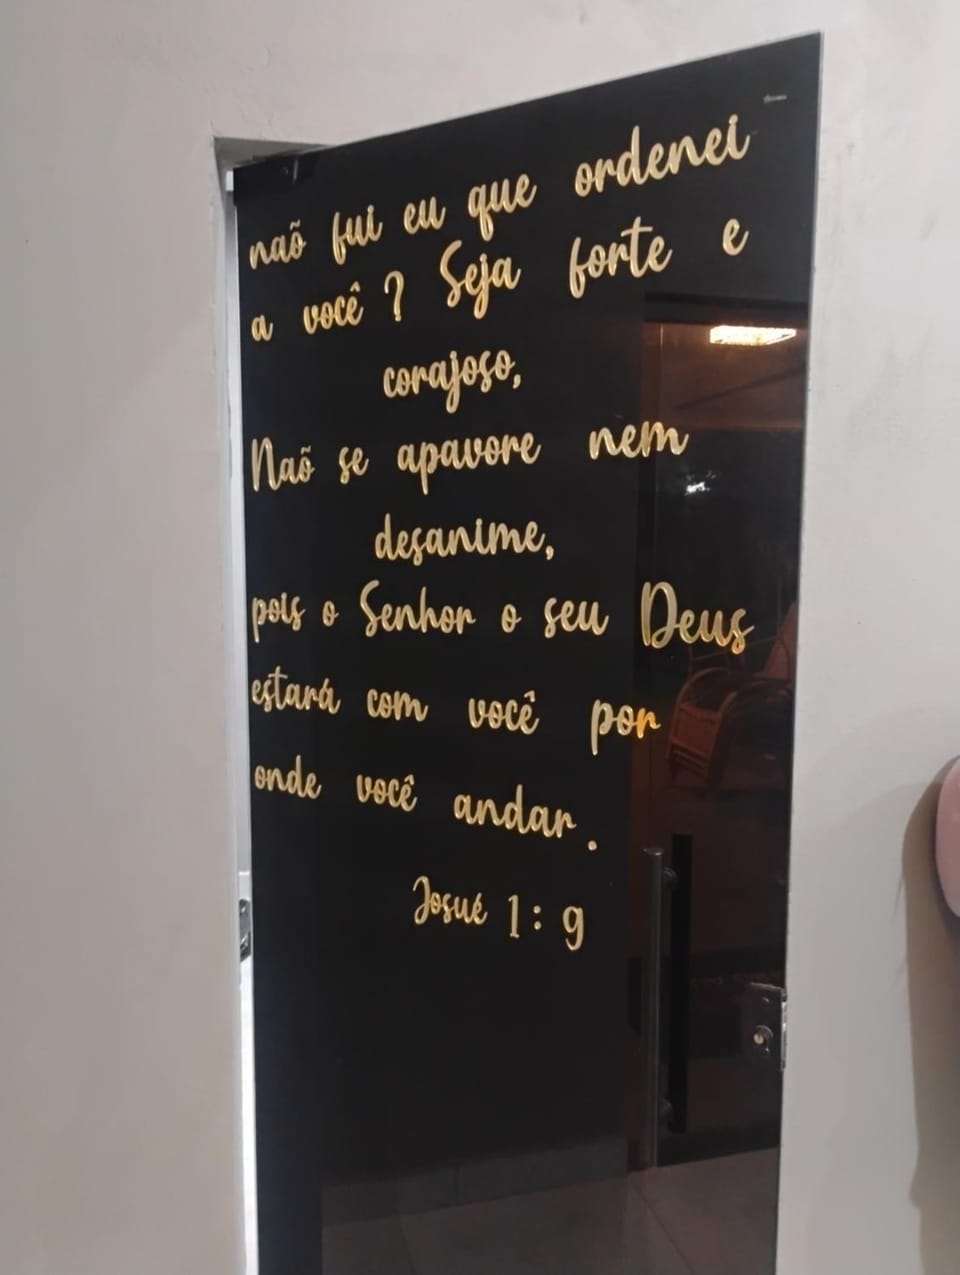 naõ fui eu que ordenei
a você ? Seja forte e
corajoso,
Naõ se apavore nem
desanime,
pois o Senhor o seu Deus
estará com você por
onde você andar .
Josué 1 : 9